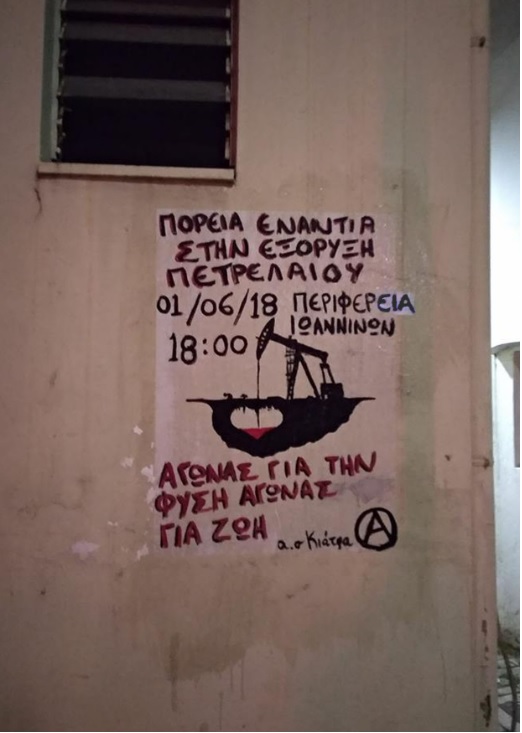 ΠΟΡΕΙΑ ΕΝΑΝΤΙΑ
ΣΤΗΝ ΕΞΟΡΥΞΗ
ΠΕΤΡΕΛΑΙΟΥ
01/06/18 ΠΕΡΙΦΕΡΕΙΑ
ΙΩΑΝΝΙΝΩΝ
18:00
ΑΓΩΝΑΣ ΓΙΑ ΤΗΝ
ΦΥΣΗ ΑΓΩΝΑΣ
ΓΙΑ ΖΩΗ
α.σ Κιάτρα Ⓐ